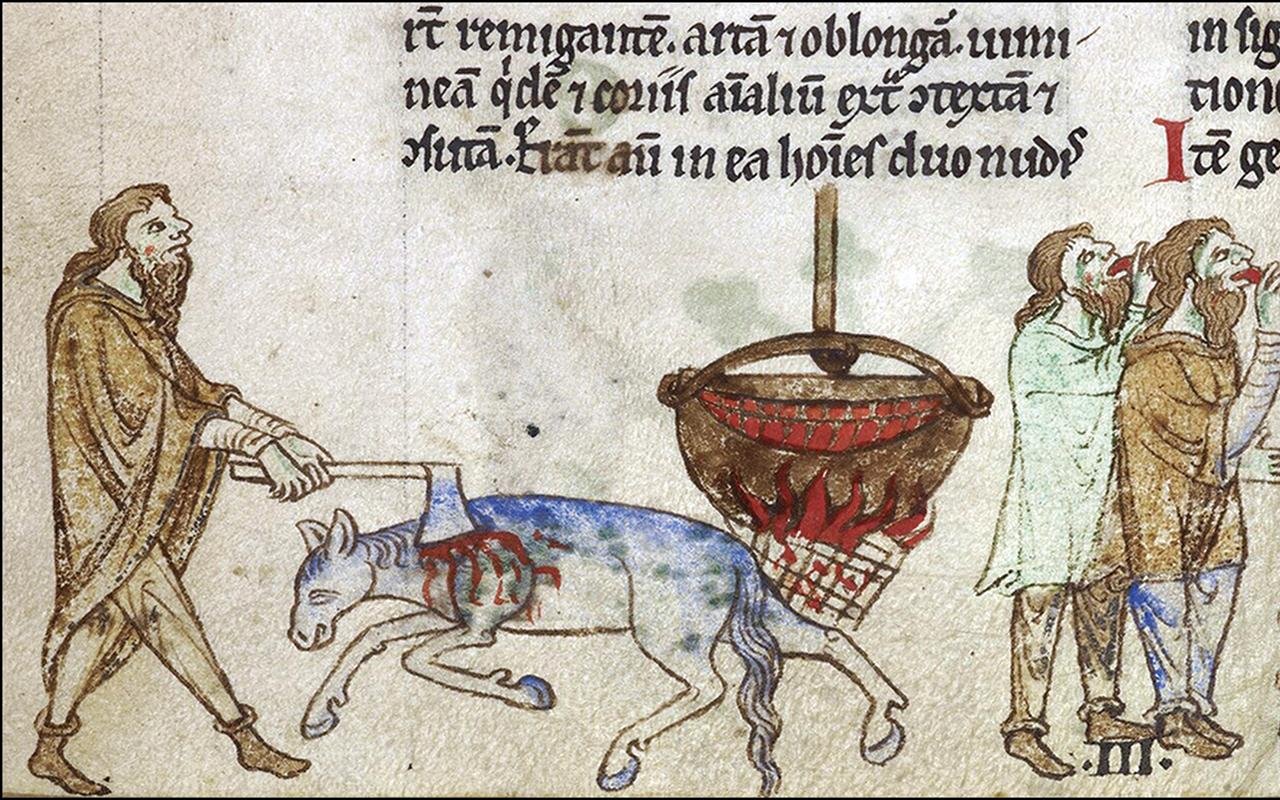 rt̄ remigantē. artā ⁊ oblongā. uimi-
neā q'dē ⁊ coriis aīaliū ext̄ ↄtextā ⁊
ↄsutā. Erāt aū in ea hoīes duo nudis
in sig
tion
Itē ge
.III.